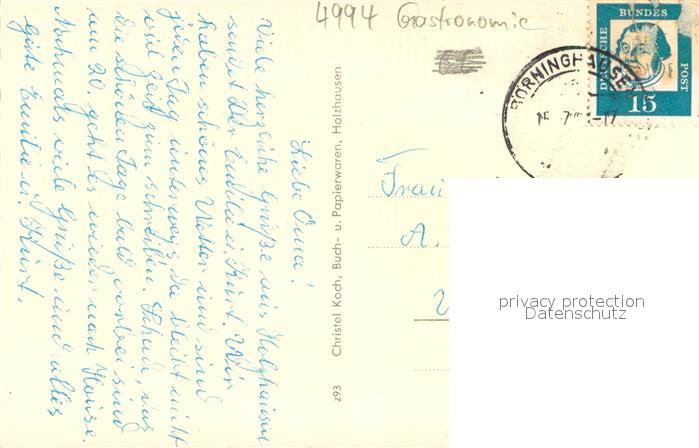 4994 Gastronomie
Liebe Oma!
Viele herzliche Grüße aus Holzhausen
sendet Dir Emilie u. Kurt. Wir
haben schönes Wetter und sind
jeden Tag unterwegs. Da bleibt nicht
viel Zeit zum schreiben. Schade, das
die schönen Tage bald vorbei sind
am 20. geht es wieder nach Hause.
Nochmals viele Grüße und alles
Gute Emilie u. Kurt.
z93 Christel Koch, Buch- u. Papierwaren, Holzhausen
BÖRNINGHAUSEN
DEUTSCHE
BUNDES
POST
15
Frau
A.
privacy protection
Datenschutz